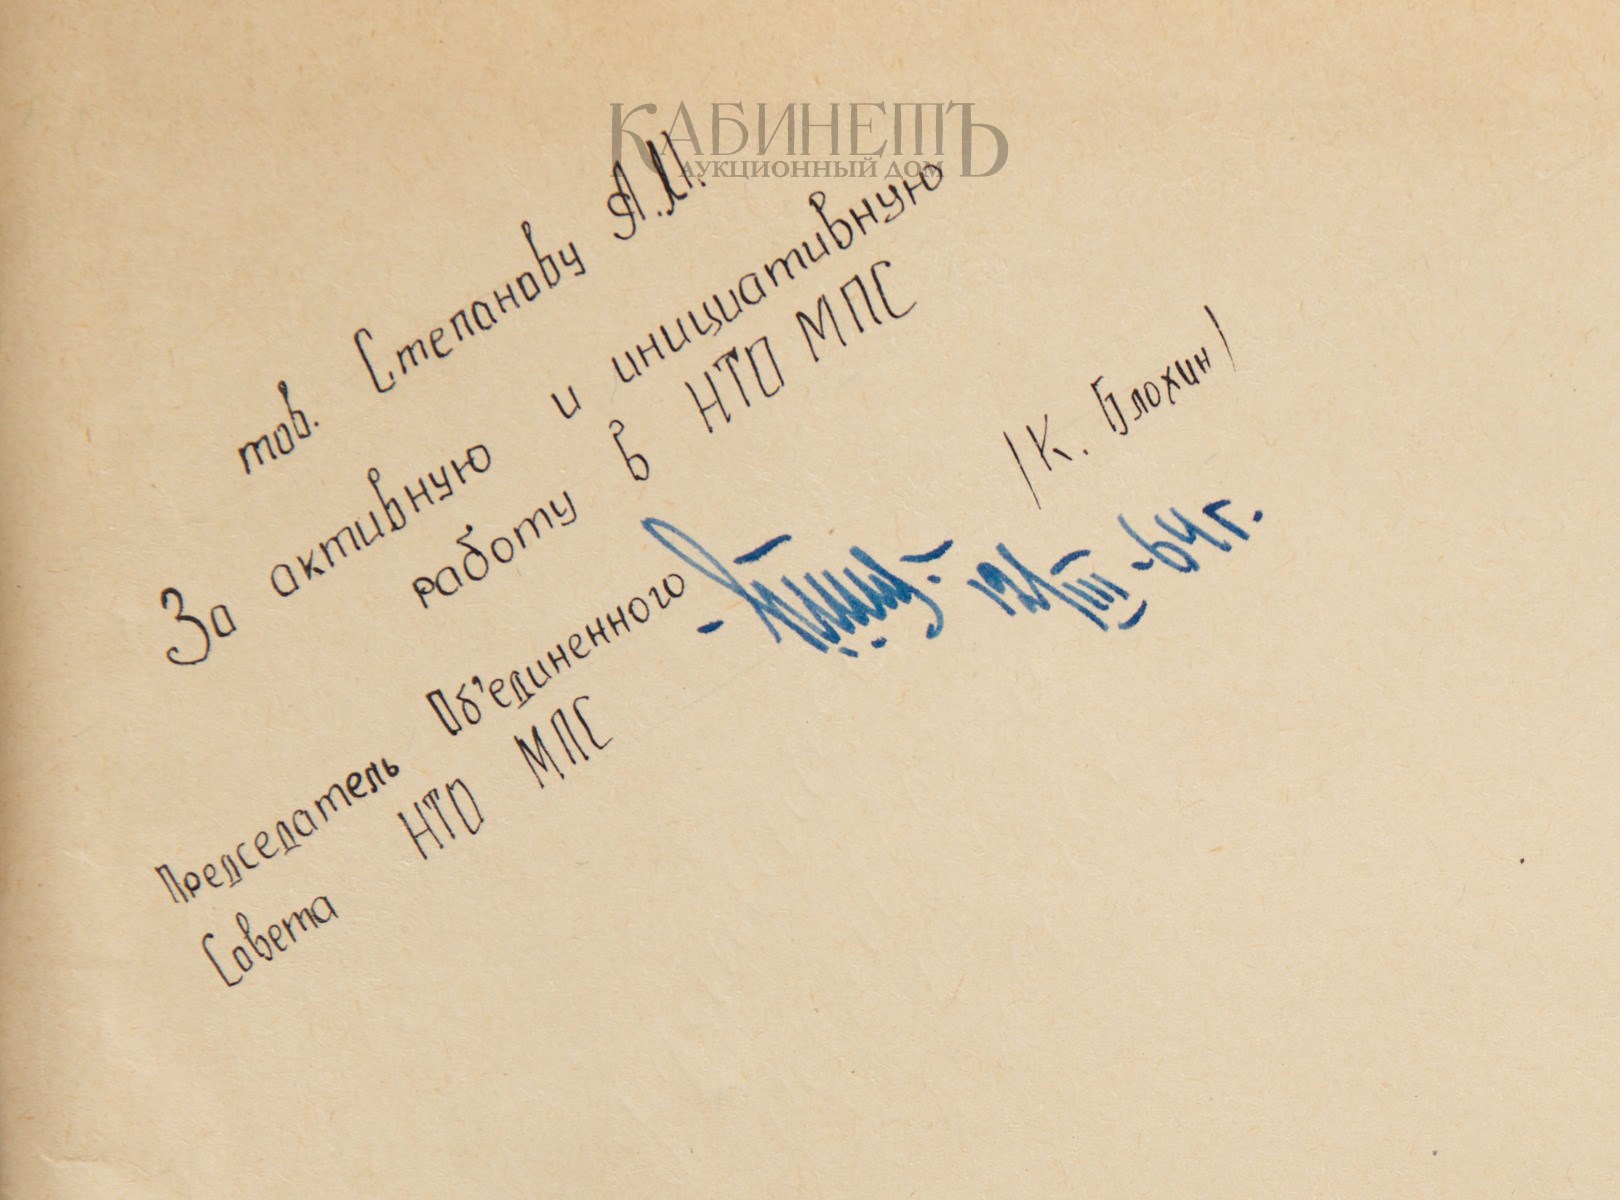 КАБИНЕТЪ
АУКЦИОННЫЙ ДОМ
тов. Степанову А.И.
За активную и инициативную
работу в НТО МПС
Председатель Об'единенного
Совета НТО МПС
/К. Блохин/
12/III-64г.